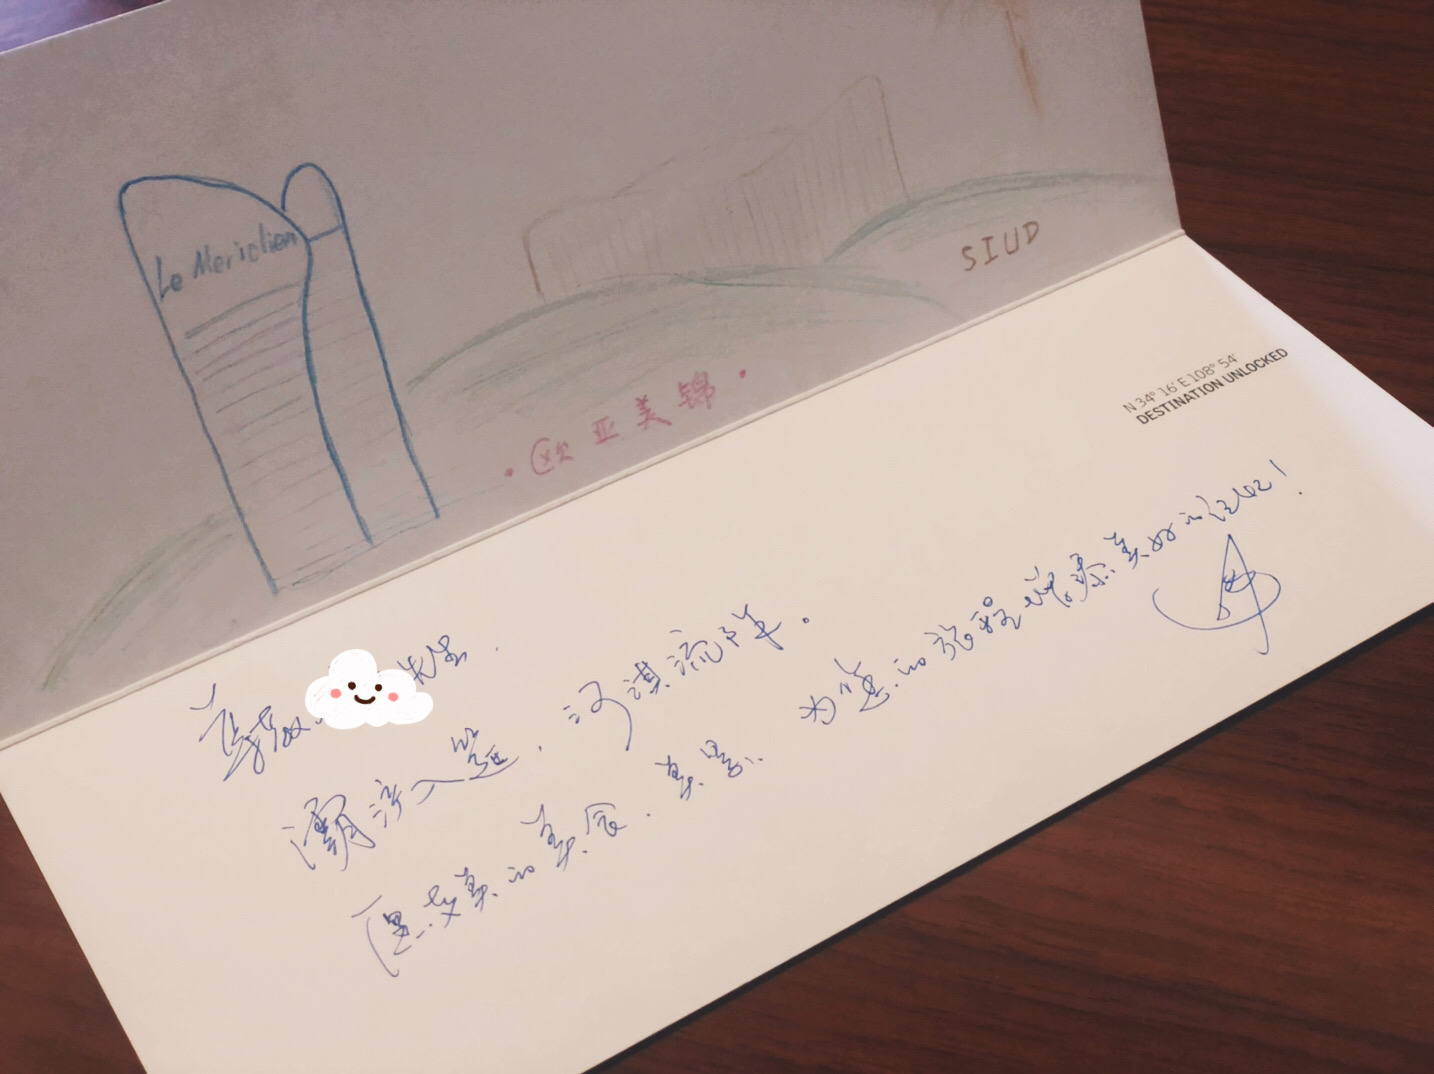 Le Meridien
SIUD
·欧亚美锦·
N 34° 16' E 108° 54'
DESTINATION UNLOCKED
尊敬 先生
灞 入筵，河淇流
愿 美的美食、美景，为您的旅程 添美好的记忆！